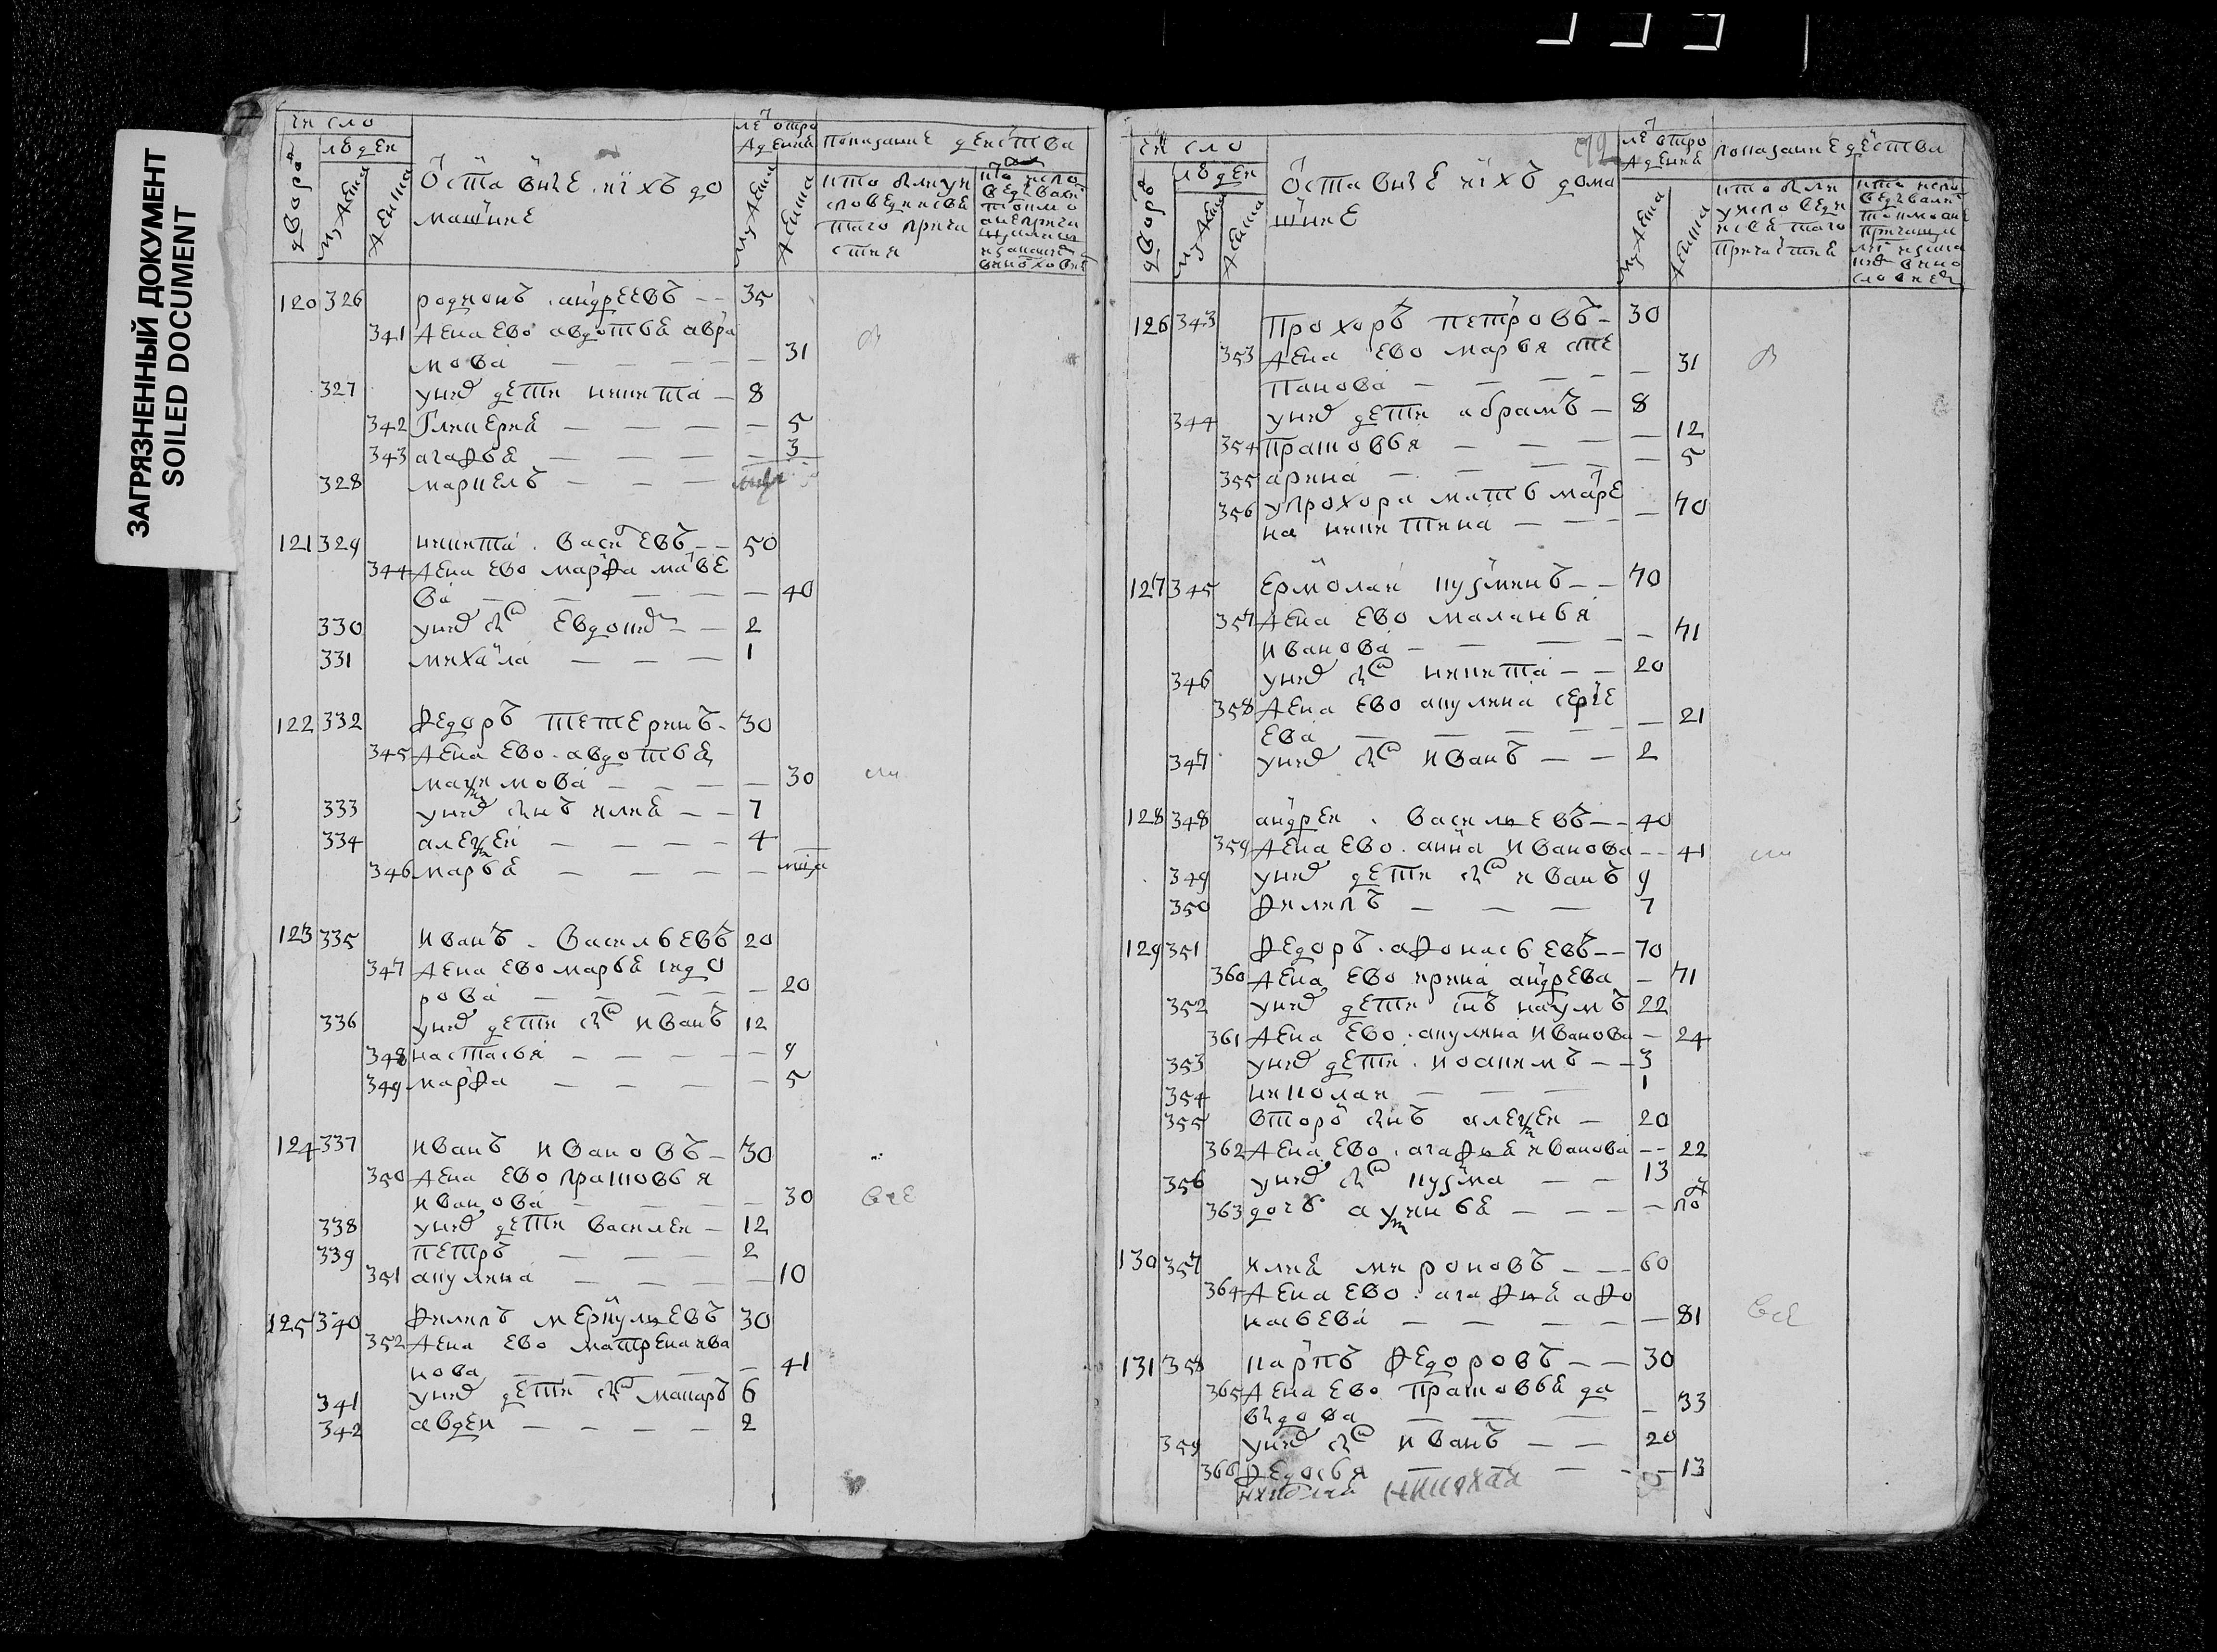 ЗАГРЯЗНЕННЫЙ ДОКУМЕНТ
SOILED DOCUMENT
число
людеи
дворо
муж еска
женска
оставшие иїхъ до
машние
лет отро
ждения
муж еска
женска
показание деиства
кто были уи
споведи и свя
таго прича
стия
120 326 родионъ андреевъ -- 35
341 жена ево авдотья авра
мова — — — — 31
327 унихъ дети никита — 8
342 гликерия — — — — 5
343 агафья — — — — 3
328 маркелъ — — —
121 329 никита васиевъ -- 50
344 жена ево марфа матве
ва — — — — 40
330 унихъ дети евдоким — — 2
331 михаила — — — 1
122 332 федоръ тетеринъ - 30
345 жена ево авдотья
максимова — — — — 30
333 унихъ снъ илия — — 7
334 алексеи — — — — 4
346 марья — — — —
123 335 иванъ васильевъ 20
347 жена ево марья сидо
рова — — — — 20
336 унихъ дети иванъ 12
348 настасья — — — — 9
349 марфа — — — — 5
124 337 иванъ ивановъ — 30
350 жена ево прасковья
иванова — — — — 30
все
338 унихъ дети василеи — 12
339 петръ — — — 2
351 акулина — — — — 10
125 340 филипъ меркульевъ 30
352 жена ево матрена ива
нова — — — — 41
341 унихъ дети макаръ 6
342 авдеи — — — — 2
число
людеи
дворо
муж еска
женска
оставшие иїхъ дома
шние
лет отро
ждения
муж еска
женска
показание деиства
кто были
уиспо веди
и святаго
причастия
126 343 прохоръ петровъ - 30
353 жена ево марья сте
панова — — — — 31
344 унихъ дети абрамъ — 8
354 прасковья — — — — 12
355 арина — — — — 5
356 упрохора мать маре
на никитина — — — 70
127 345 ермолаи кузминъ -- 70
357 жена ево маланья
иванова — — — — 71
346 унихъ никита -- 20
358 жена ево акулина серге
ева — — — — 21
347 унихъ иванъ — — 2
128 348 андреи васильевъ -- 40
359 жена ево анна иванова -- 41
349 унихъ дети иванъ 9
350 филипъ — — — 7
129 351 федоръ афонасьевъ -- 70
360 жена ево ирина андрева — 71
352 унихъ дети снъ наумъ 22
361 жена ево акулина иванова — 24
353 унихъ дети иоакимъ -- 3
354 николаи — — — 1
355 второ снъ алексеи — 20
362 жена ево агафия иванова -- 22
356 унихъ кузма — — 13
363 дочь аксинья — — —
130 357 илия мироновъ -- 60
364 жена ево агафия афо
насьева — — — — 81
все
131 358 карпъ федоровъ -- 30
365 жена ево прасковья да
выдова — — — — 33
359 унихъ иванъ — — 20
366 федосья — — — — 13